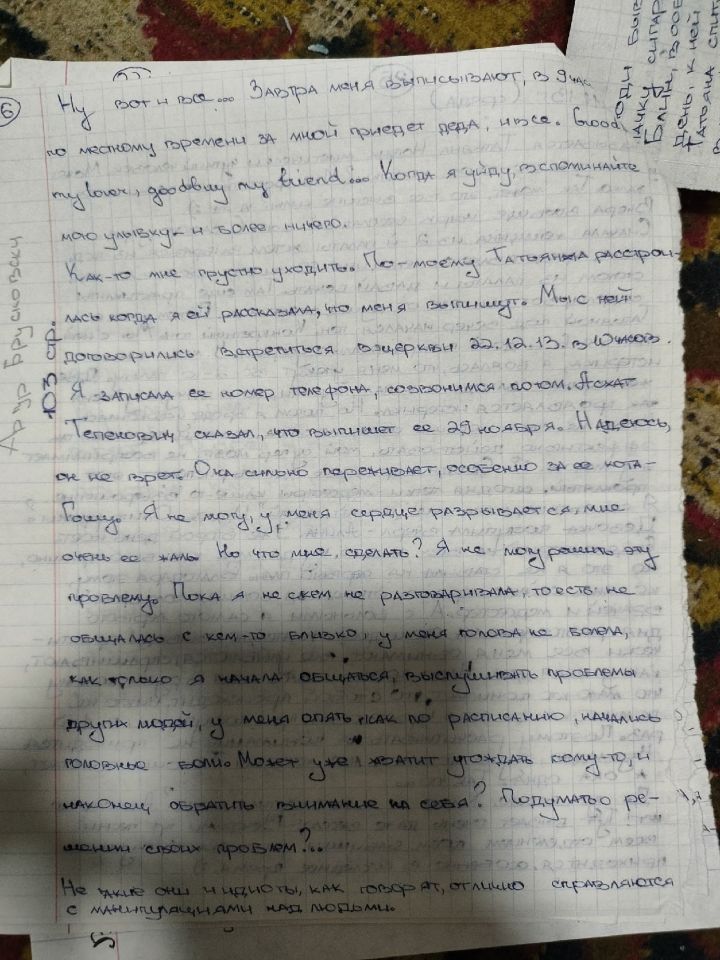 6
Ну вот и все... Завтра меня выписывают, в 9 час
по местному времени за мной приедет деда, и все. Good
my lover, goodbuy my friend... Когда я уйду, вспоминайте
мою улыбку - и более ничего.
Как-то мне грустно уходить. По-моему Татьяна расстрои-
лась когда я ей рассказала, что меня выпишут. Мы с ней
договорились встретиться в церкви 22.12.13. в 10 часов.
Я записала ее номер телефона, созвонимся потом. Асхат
сказал, что выпишет ее 29 ноября. Надеюсь,
он не врет. Она сильно переживает, особенно за ее кота-
Гошу. Я не могу, у меня сердце разрывается, мне
очень ее жаль. Но что мне сделать? Я не могу решить эту
проблему. Пока я не с кем не разговаривала, то есть не
общалась с кем-то близко, у меня голова не болела,
как только я начала общаться, выслушивать проблемы
других людей, у меня опять, как по расписанию, начались
головные боли. Может уже хватит угождать кому-то, и
наконец обратить внимание на себя? Подумать о ре-
шении своих проблем?...
Не такие они и идиоты, как говорят, отлично справляются
с манипуляциями над людьми.
103 стр.
пачку сигар
Блин, вооб
день, к ней
Татьяна спит